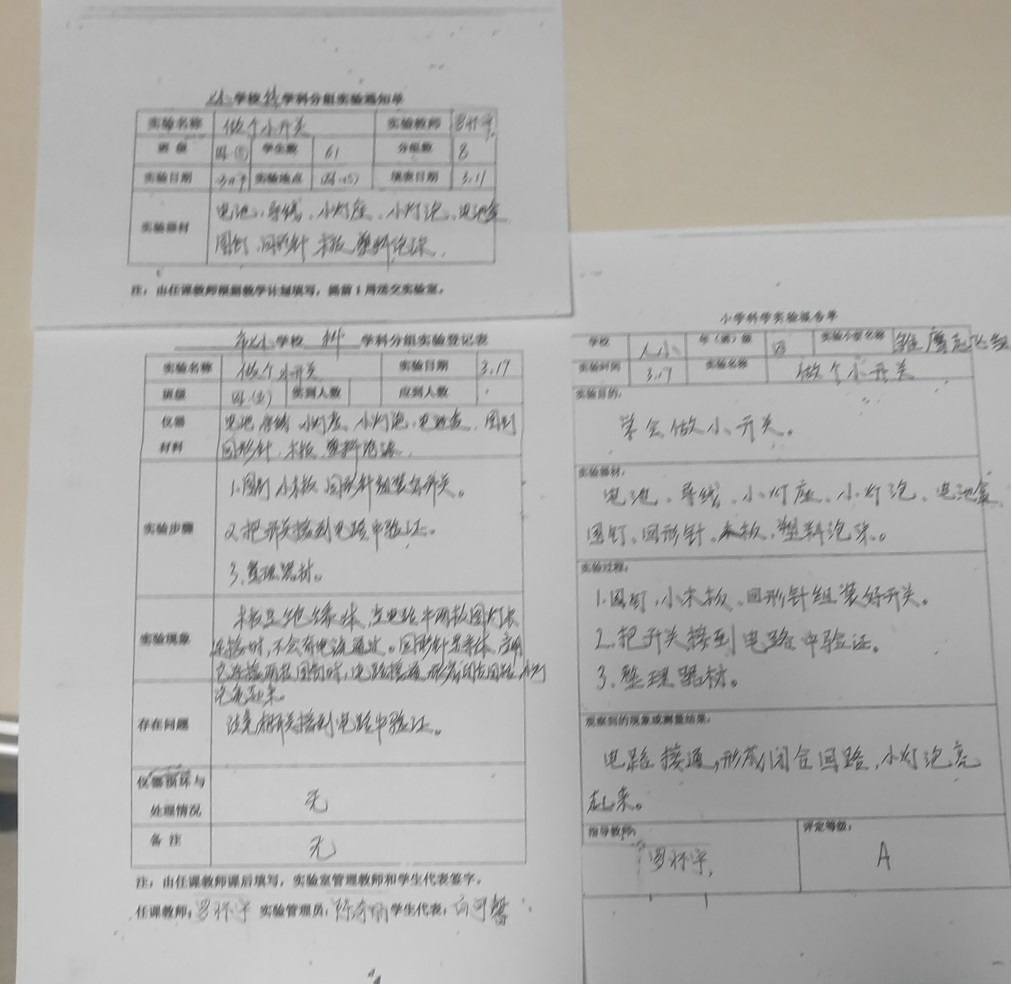 学校 科 学科分组实验通知单
实验名称 做个小开关 实验教师 罗怀宇
班级 学生数 61 分组数 8
实验日期 实验地点 填表日期 3.11
实验器材 电池、导线、小灯座、小灯泡、电池盒
图钉、回形针、木板、塑料泡沫。
注：由任课教师根据教学计划填写，提前1周送交实验室。
学校 科 学科分组实验登记表
实验名称 做个小开关 实验日期 3.17
班级 实到人数 应到人数
仪器 电池、导线、小灯座、小灯泡、电池盒、图钉
材料 回形针、木板、塑料泡沫
实验步骤
1.图钉、小木板、回形针组装好开关。
2.把开关接到电路中验证。
3.整理器材。
实验现象
木板是绝缘体，当电路中两枚图钉未
连接时，不会有电流通过。回形针是导体，
连接两枚图钉时，电路接通，形成闭合回路，小灯
泡亮起来。
存在问题 注意将开关接到电路中验证。
仪器损坏与
处理情况 无
备注 无
注：由任课教师课后填写，实验室管理教师和学生代表签字。
任课教师：罗怀宇 实验管理员： 学生代表：
小学科学实验报告单
学校 人小 年（班）级 四 实验小组名称
实验时间 3.17 实验名称 做个小开关
实验目的：
学会做小开关。
实验器材：
电池、导线、小灯座、小灯泡、电池盒
图钉、回形针、木板、塑料泡沫。
实验过程：
1.图钉、小木板、回形针组装好开关。
2.把开关接到电路中验证。
3.整理器材。
观察到的现象或测量结果：
电路接通，形成闭合回路，小灯泡亮
起来。
指导教师： 评定等级：
罗怀宇 A